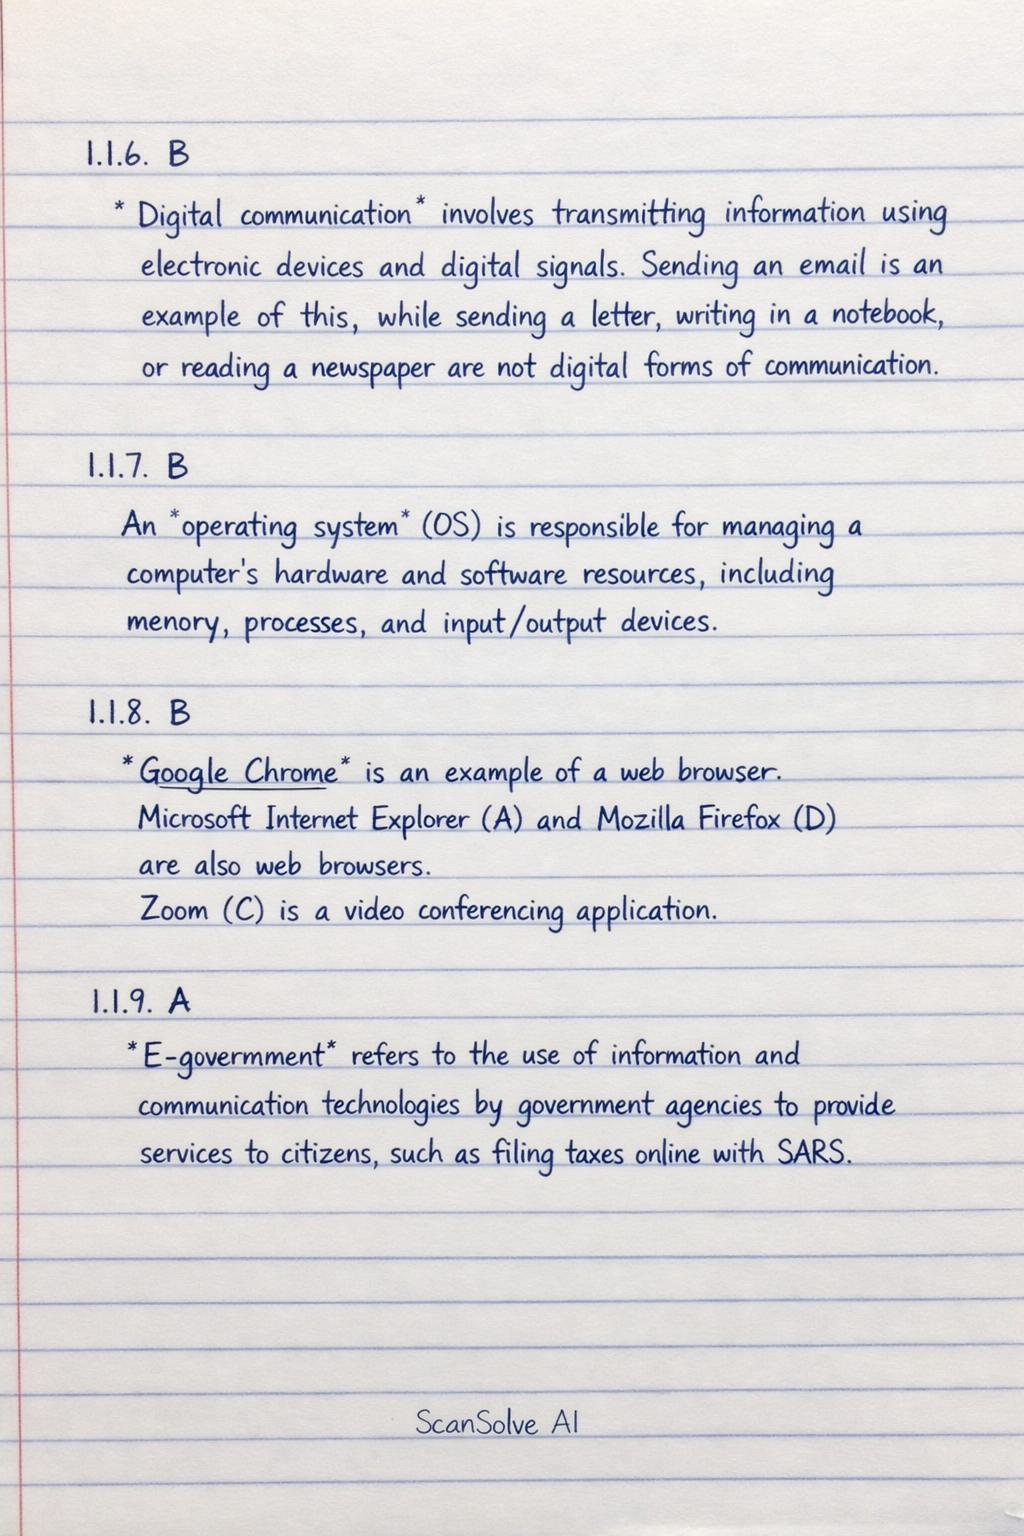 1.1.6. B
* Digital communication* involves transmitting information using
electronic devices and digital signals. Sending an email is an
example of this, while sending a letter, writing in a notebook,
or reading a newspaper are not digital forms of communication.
1.1.7. B
An *operating system* (OS) is responsible for managing a
computer's hardware and software resources, including
menory, processes, and input/output devices.
1.1.8. B
*Google Chrome* is an example of a web browser.
Microsoft Internet Explorer (A) and Mozilla Firefox (D)
are also web browsers.
Zoom (C) is a video conferencing application.
1.1.9. A
*E-govermment* refers to the use of information and
communication technologies by government agencies to provide
services to citizens, such as filing taxes online with SARS.
ScanSolve AI